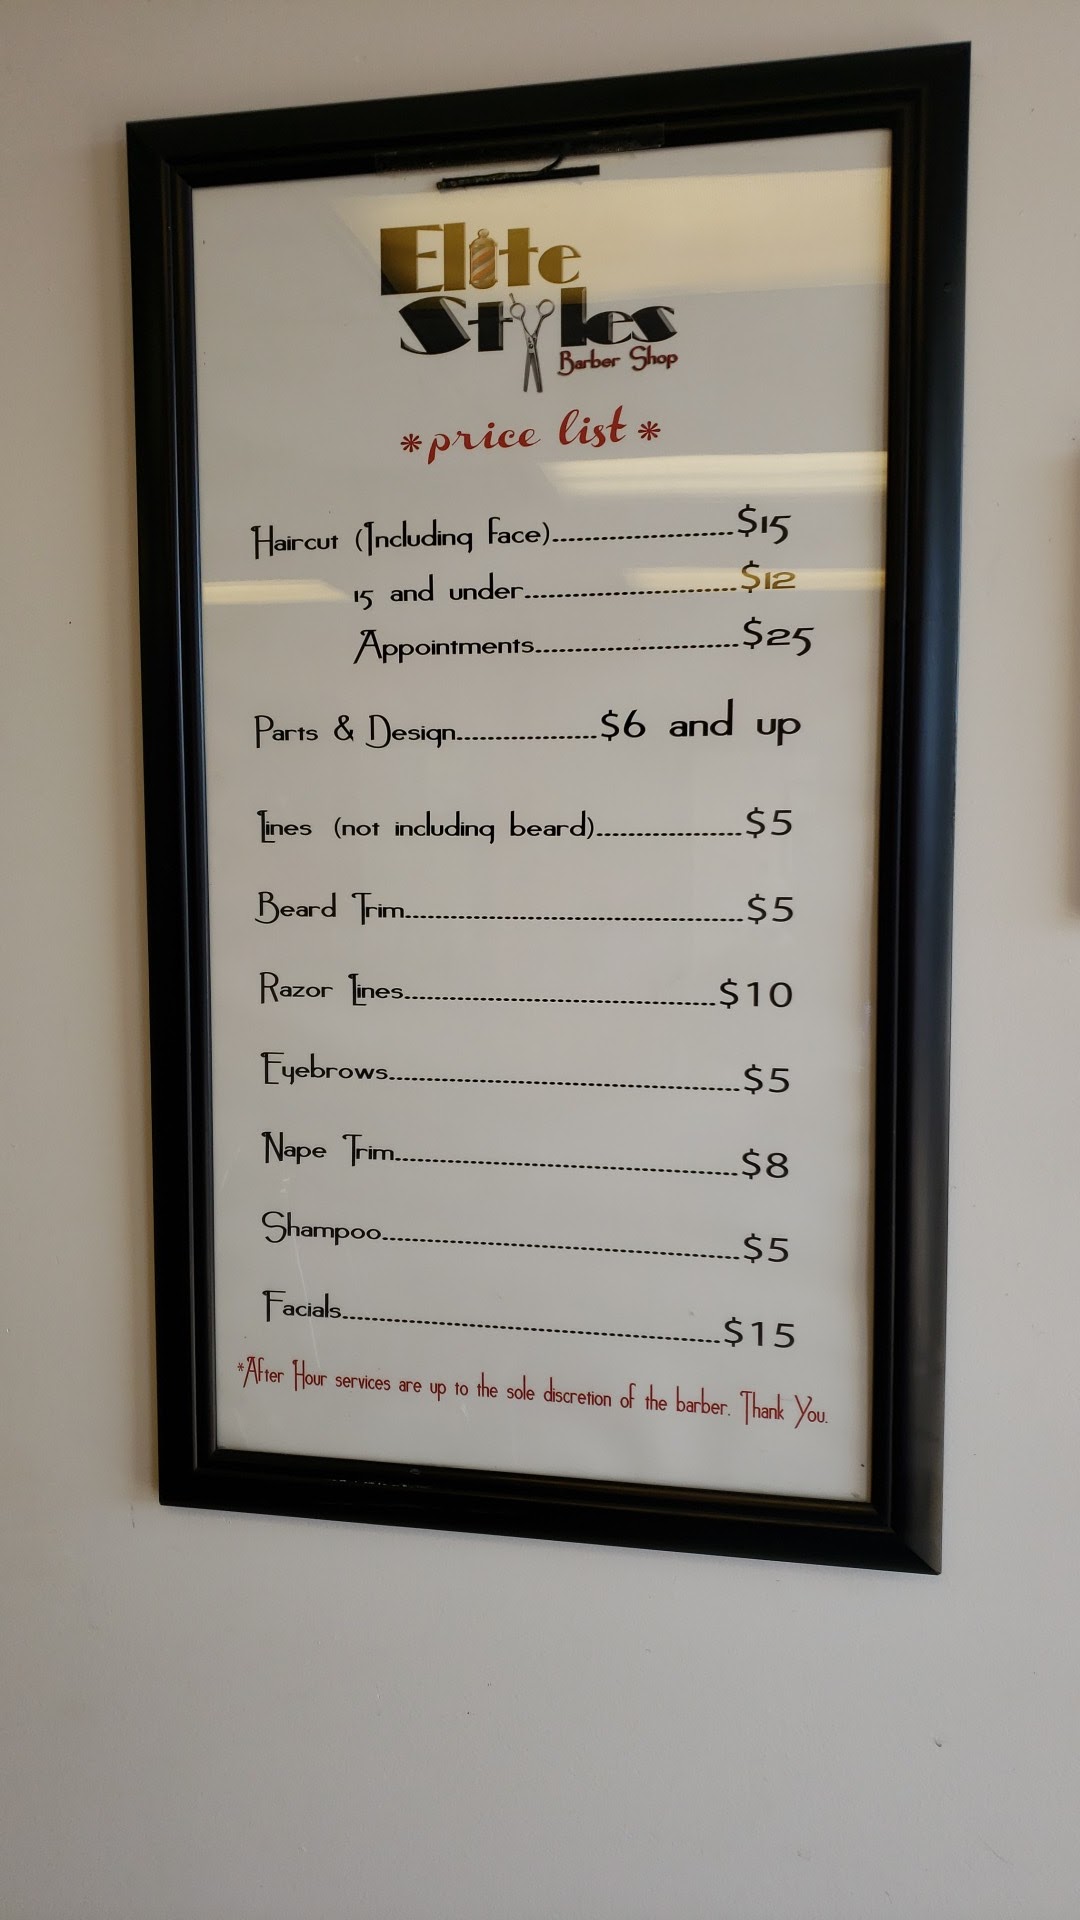 Elite
Styles
Barber Shop
*price list*
Haircut (Including Face)........................$15
15 and under............................$12
Appointments...........................$25
Parts & Design..................$6 and up
Lines (not including beard)..................$5
Beard Trim...........................................$5
Razor Lines.......................................$10
Eyebrows............................................$5
Nape Trim...........................................$8
Shampoo............................................$5
Facials...............................................$15
*After Hour services are up to the sole discretion of the barber. Thank You.